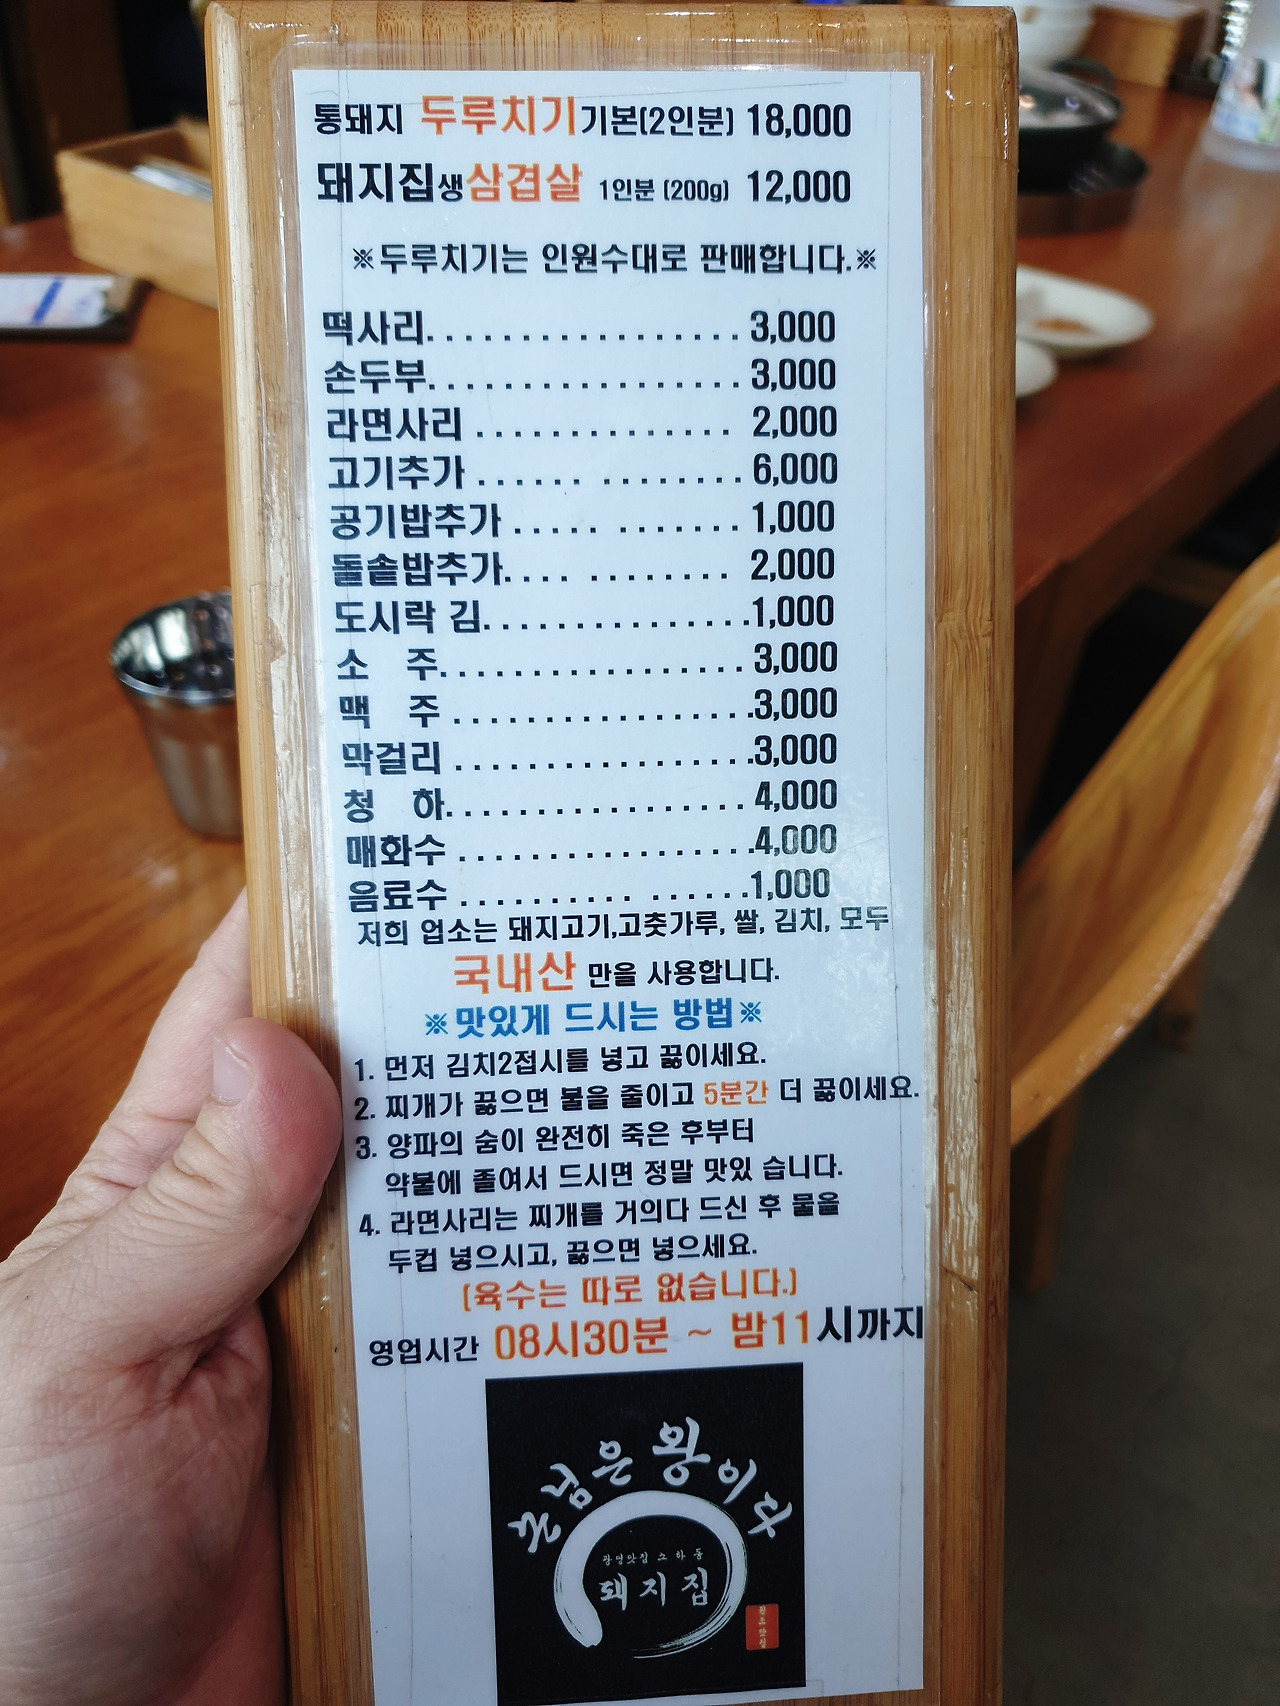 통돼지 두루치기기본(2인분) 18,000
돼지집생삼겹살 1인분 (200g) 12,000
※두루치기는 인원수대로 판매합니다.※
떡사리. . . . . . . . . . . . . . . . . 3,000
손두부. . . . . . . . . . . . . . . . . 3,000
라면사리 . . . . . . . . . . . . . . 2,000
고기추가 . . . . . . . . . . . . . . 6,000
공기밥추가 . . . . . . . . . . . . 1,000
돌솥밥추가. . . . . . . . . . . . 2,000
도시락 김. . . . . . . . . . . . . . .1,000
소 주. . . . . . . . . . . . . . . . . 3,000
맥 주 . . . . . . . . . . . . . . . . .3,000
막걸리 . . . . . . . . . . . . . . . . .3,000
청 하. . . . . . . . . . . . . . . . . 4,000
매화수 . . . . . . . . . . . . . . . . .4,000
음료수 . . . . . . . . . . . . . . . .1,000
저희 업소는 돼지고기,고춧가루, 쌀, 김치, 모두
국내산 만을 사용합니다.
※맛있게 드시는 방법※
1. 먼저 김치2접시를 넣고 끓이세요.
2. 찌개가 끓으면 불을 줄이고 5분간 더 끓이세요.
3. 양파의 숨이 완전히 죽은 후부터
약불에 졸여서 드시면 정말 맛있 습니다.
4. 라면사리는 찌개를 거의다 드신 후 물을
두컵 넣으시고, 끓으면 넣으세요.
(육수는 따로 없습니다.)
영업시간 08시30분 ~ 밤11시까지
손님은 왕이다
광명맛집 소하동
돼지집